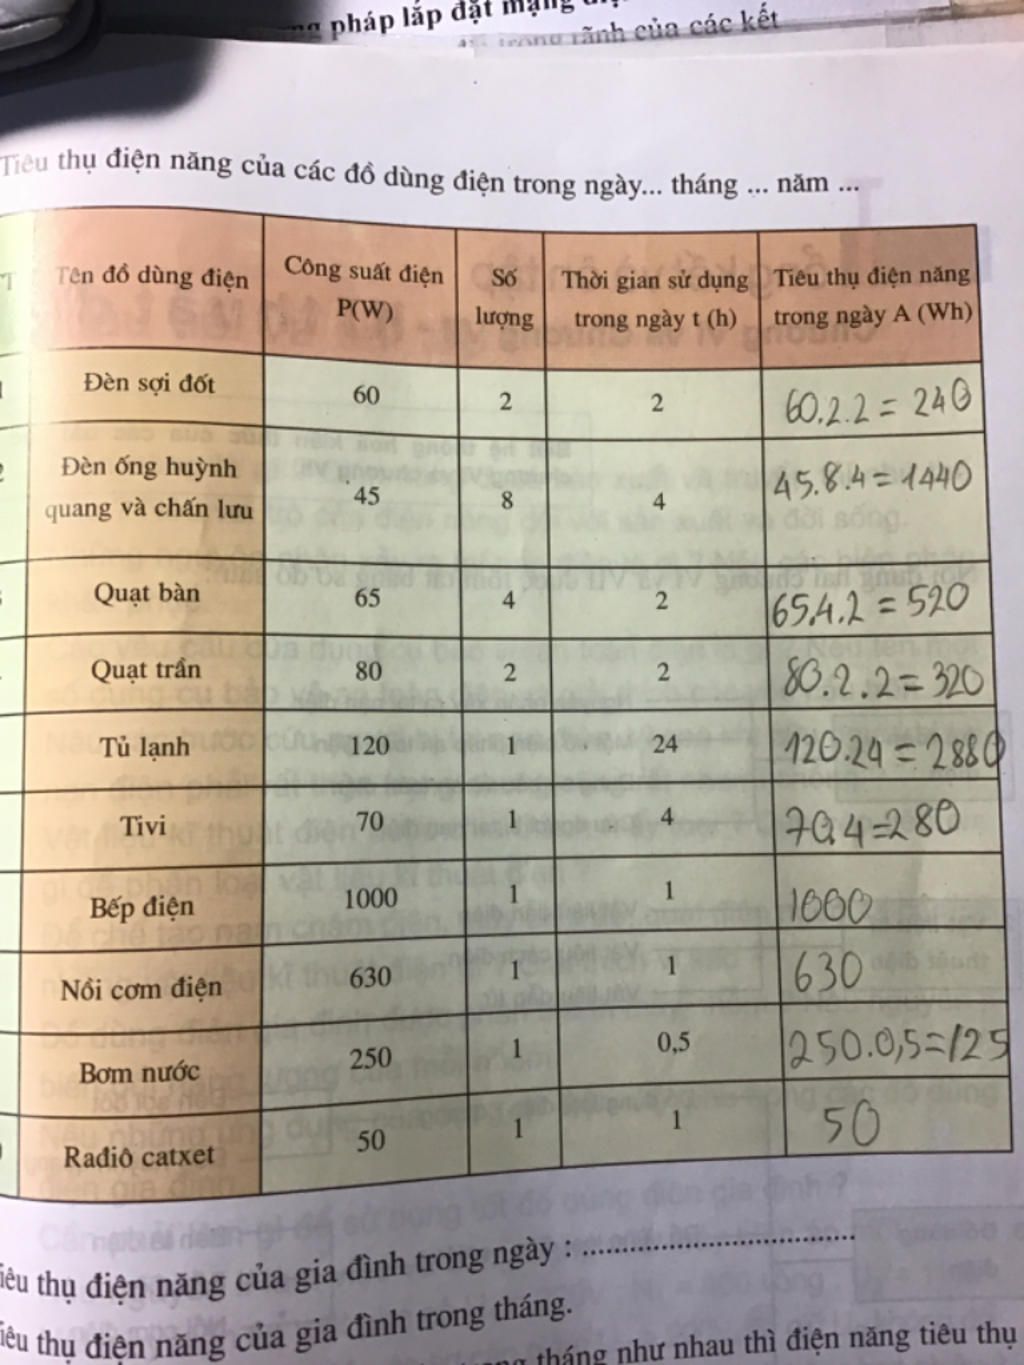 pháp lắp đặt mạng
rãnh của các kết
Tiêu thụ điện năng của các đồ dùng điện trong ngày... tháng ... năm ...
Tên đồ dùng điện Công suất điện P(W) Số lượng Thời gian sử dụng trong ngày t (h) Tiêu thụ điện năng trong ngày A (Wh)
Đèn sợi đốt 60 2 2 60.2.2 = 240
Đèn ống huỳnh quang và chấn lưu 45 8 4 45.8.4 = 1440
Quạt bàn 65 4 2 65.4.2 = 520
Quạt trần 80 2 2 80.2.2 = 320
Tủ lạnh 120 1 24 120.24 = 2880
Tivi 70 1 4 70.4 = 280
Bếp điện 1000 1 1 1000
Nồi cơm điện 630 1 1 630
Bơm nước 250 1 0,5 250.0,5 = 125
Rađiô catxet 50 1 1 50
iêu thụ điện năng của gia đình trong ngày : ....................................
iêu thụ điện năng của gia đình trong tháng.
tháng như nhau thì điện năng tiêu thụ